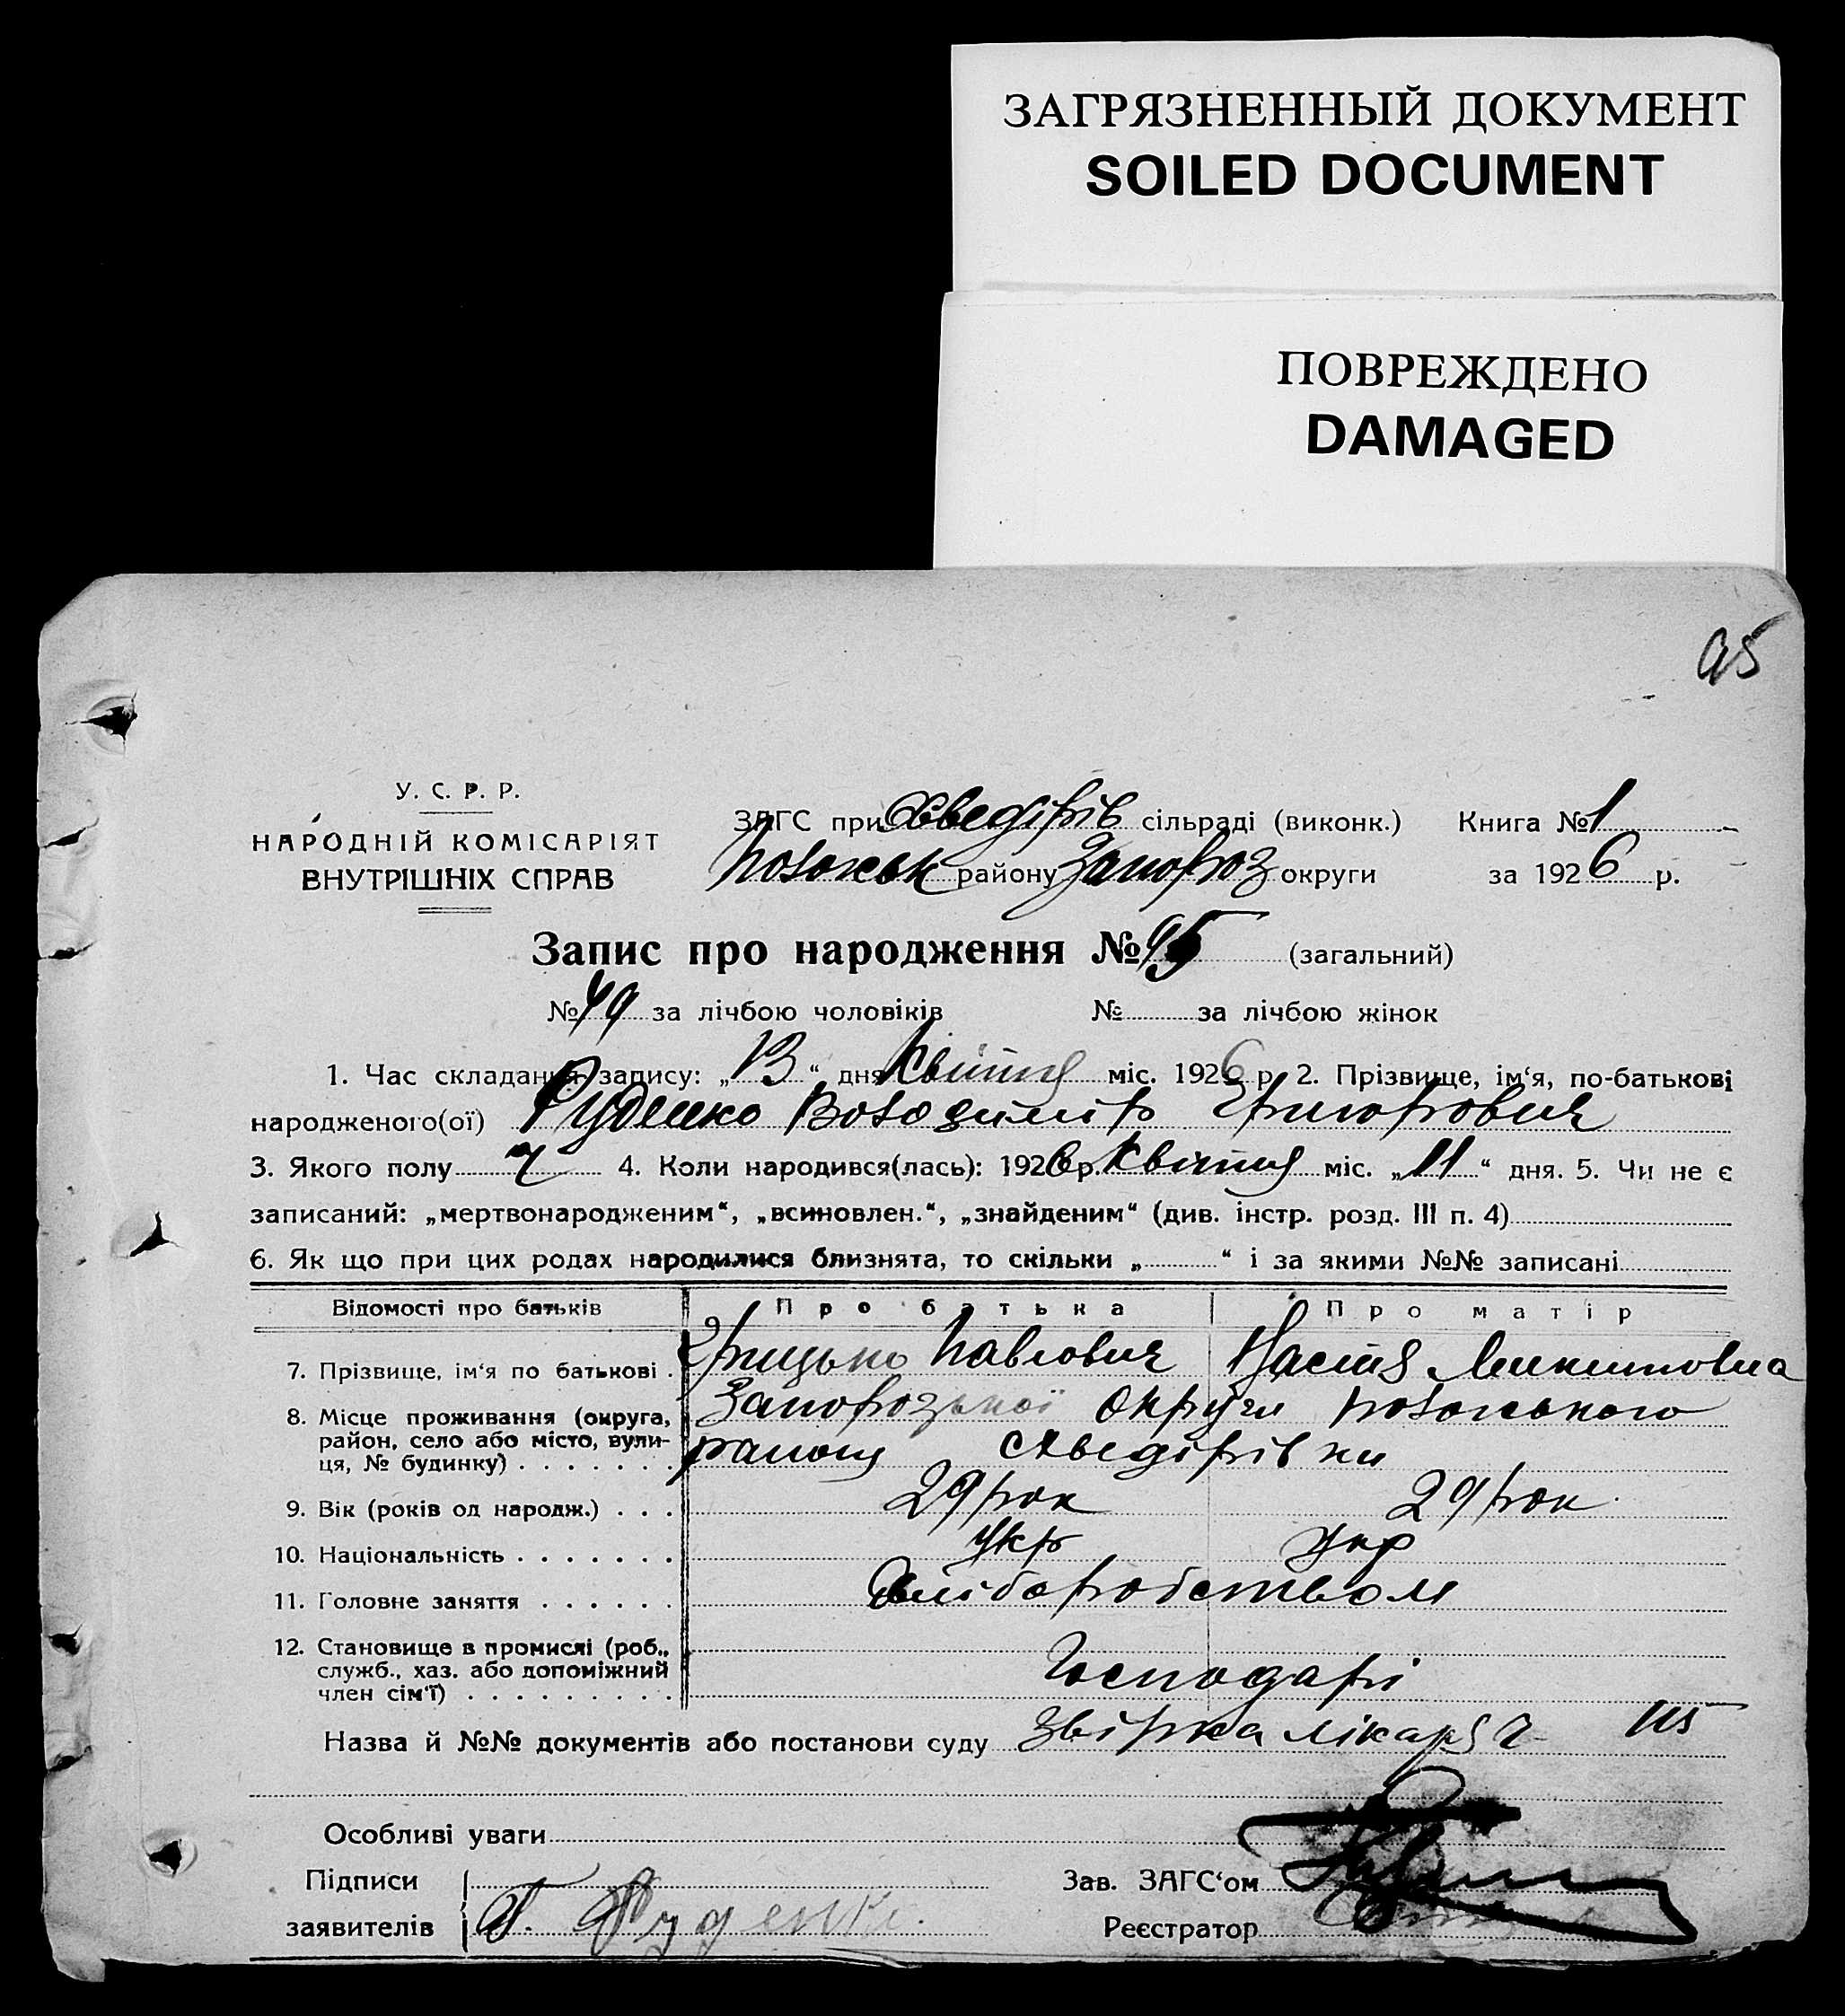 ЗАГРЯЗНЕННЫЙ ДОКУМЕНТ
SOILED DOCUMENT
ПОВРЕЖДЕНО
DAMAGED
95
У. С. Р. Р.
НАРОДНІЙ КОМІСАРІЯТ
ВНУТРІШНІХ СПРАВ
ЗАГС при Хведірів сільраді (виконк.) Книга № 1
району Запороз округи за 1926 р.
Запис про народження № 95 (загальний)
№ 49 за лічбою чоловіків № за лічбою жінок
1. Час складання запису: „13“ дня Квітня міс. 1926 р. 2. Прізвище, ім‘я, по-батькові
народженого(ої) Руденко Володимір Григорович
3. Якого полу ч 4. Коли народився(лась): 1926 р. Квітня міс. „11“ дня. 5. Чи не є
записаний: „мертвонародженим“, „всиновлен.“, „знайденим“ (див. інстр. розд. III п. 4)
6. Як що при цих родах народилися близнята, то скільки „ “ і за якими №№ записані
Відомості про батьків Про батька Про матір
7. Прізвище, ім‘я по батькові . Грицько Павлович Настя Микитовна
8. Місце проживання (округа, Запорозької Округи
район, село або місто, вули- району Хведірівки
ця, № будинку) . . . . . . .
9. Вік (років од народж.) . . . 29 рок 29 рок.
10. Національність . . . . . . . Укр Укр
11. Головне заняття . . . . . . Хліборобством
12. Становище в промислі (роб.,
служб., хаз. або допоміжний Господарі
член сім‘ї) . . . . . . . . .
Назва й №№ документів або постанови суду лікаря 115
Особливі уваги
Підписи Зав. ЗАГС‘ом
заявителів Г. Руденко. Реєстратор